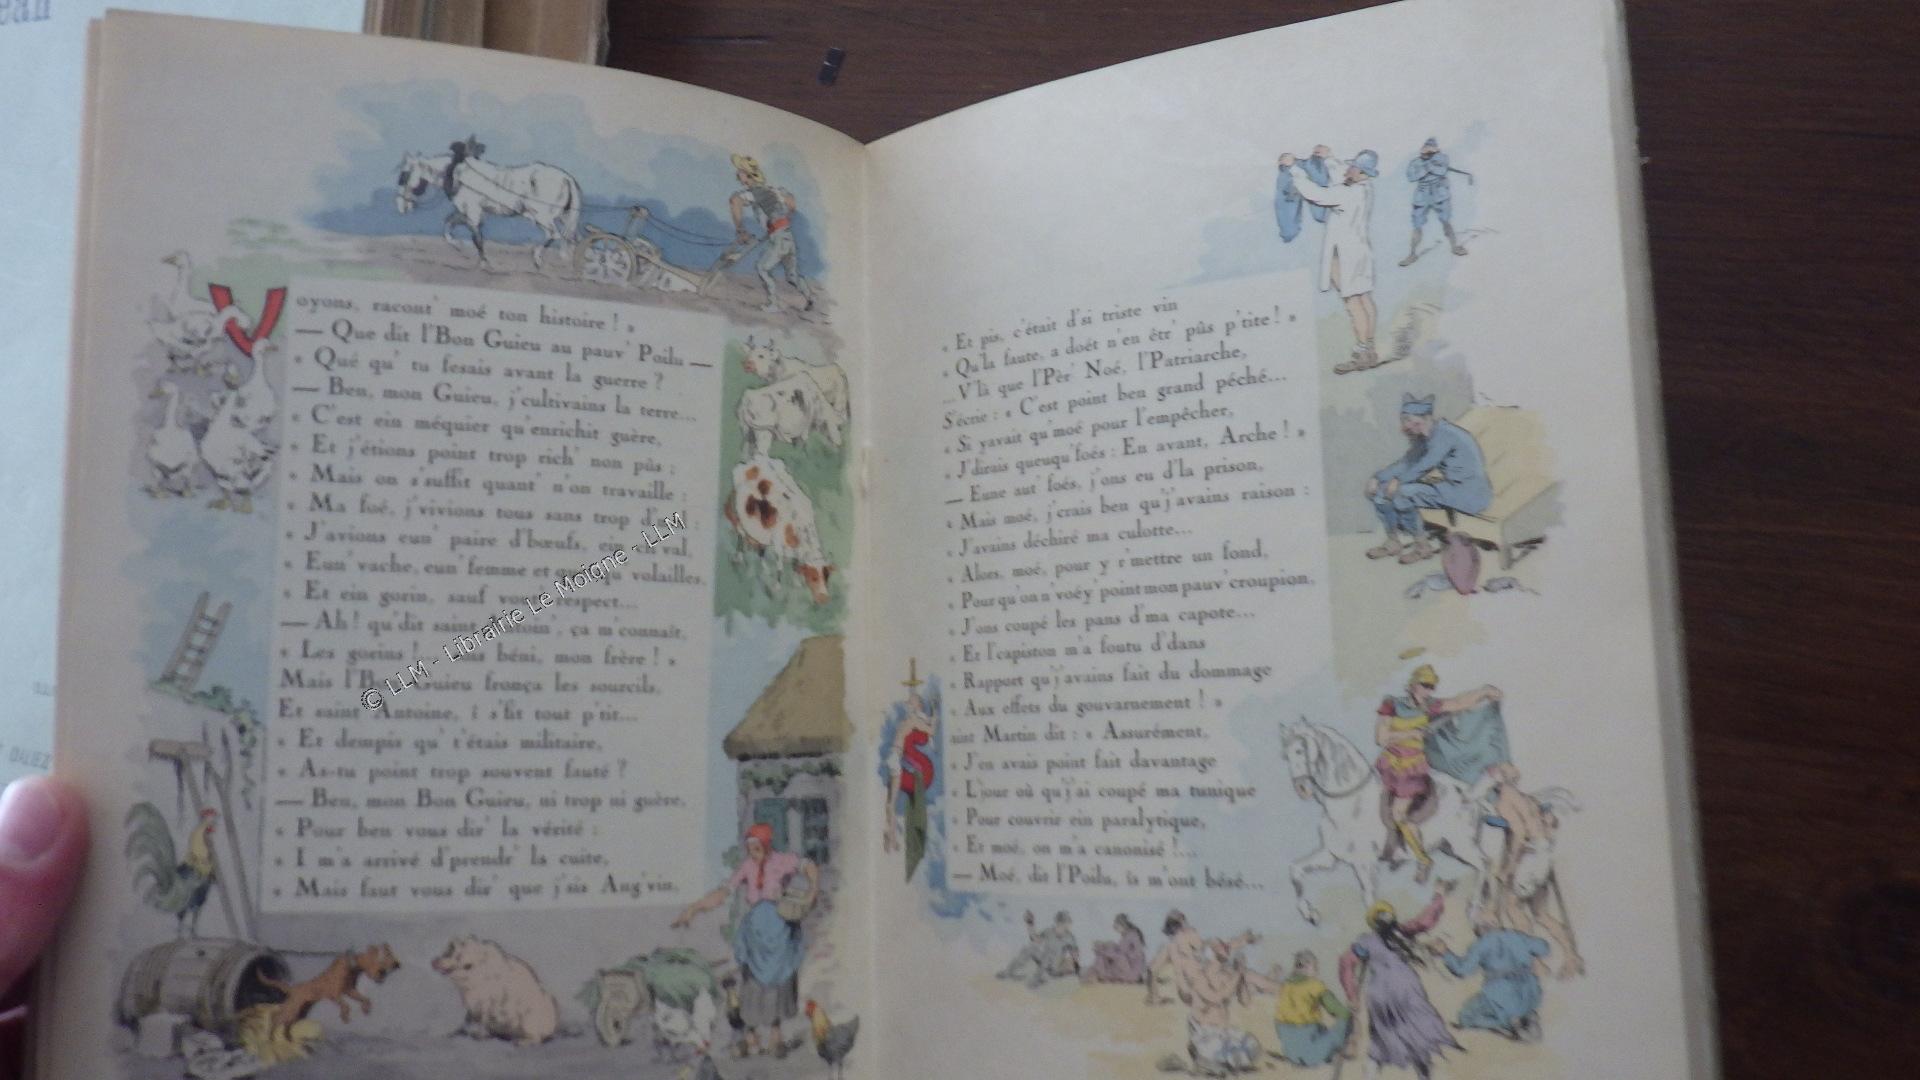 Voyons, racont' moé ton histoire ! »
— Que dit l'Bon Guieu au pauv' Poilu —
« Qué qu' tu fesais avant la guerre ?
— Ben, mon Guieu, j'cultivains la terre...
« C'est ein méquier qu'enrichit guère,
« Et j'étions point trop rich' non pûs ;
« Mais on s'suffit quant' n'on travaille :
« Ma foé, j'vivions tous sans trop d'
« J'avions eun' paire d'bœufs, ein ch'val,
« Eun' vache, eun' femme et volailles,
« Et ein gorin, sauf vout' respect...
— Ah ! qu'dit saint Antoin', ça m'connaît,
« Les gorins ! béni, mon frère ! »
Mais l'Bon Guieu fronça les sourcils,
Et saint Antoine, i s'fit tout p'tit...
« Et dempis qu' t'étais militaire,
« As-tu point trop souvent fauté ?
— Ben, mon Bon Guieu, ni trop ni guère,
« Pour ben vous dir' la vérité :
« I m'a arrivé d'prendr' la cuite,
« Mais faut vous dir' que j'sis Ang'vin,
« Et pis, c'était d'si triste vin
« Qu'la faute, a doét n'en êtr' pûs p'tite ! »
...V'là que l'Pèr' Noé, l'Patriarche,
S'écrie : « C'est point ben grand péché...
« Si yavait qu'moé pour l'empêcher,
« J'dirais queuqu'foés : En avant, Arche ! »
— Eune aut' foés, j'ons eu d'la prison,
« Mais moé, j'crais ben qu'j'avains raison :
« J'avains déchiré ma culotte...
« Alors, moé, pour y r'mettre un fond,
« Pour qu'on n'voéy' point mon pauv' croupion,
« J'ons coupé les pans d'ma capote...
« Et l'capiston m'a foutu d'dans
« Rapport qu'j'avains fait du dommage
« Aux effets du gouvarnement ! »
Saint Martin dit : « Assurément,
« J'en avais point fait davantage
« L'jour où qu'j'ai coupé ma tunique
« Pour couvrir ein paralytique,
« Et moé, on m'a canonisé !...
— Moé, dit l'Poilu, is m'ont bésé...
© LLM - Librairie Le Moigne - LLM